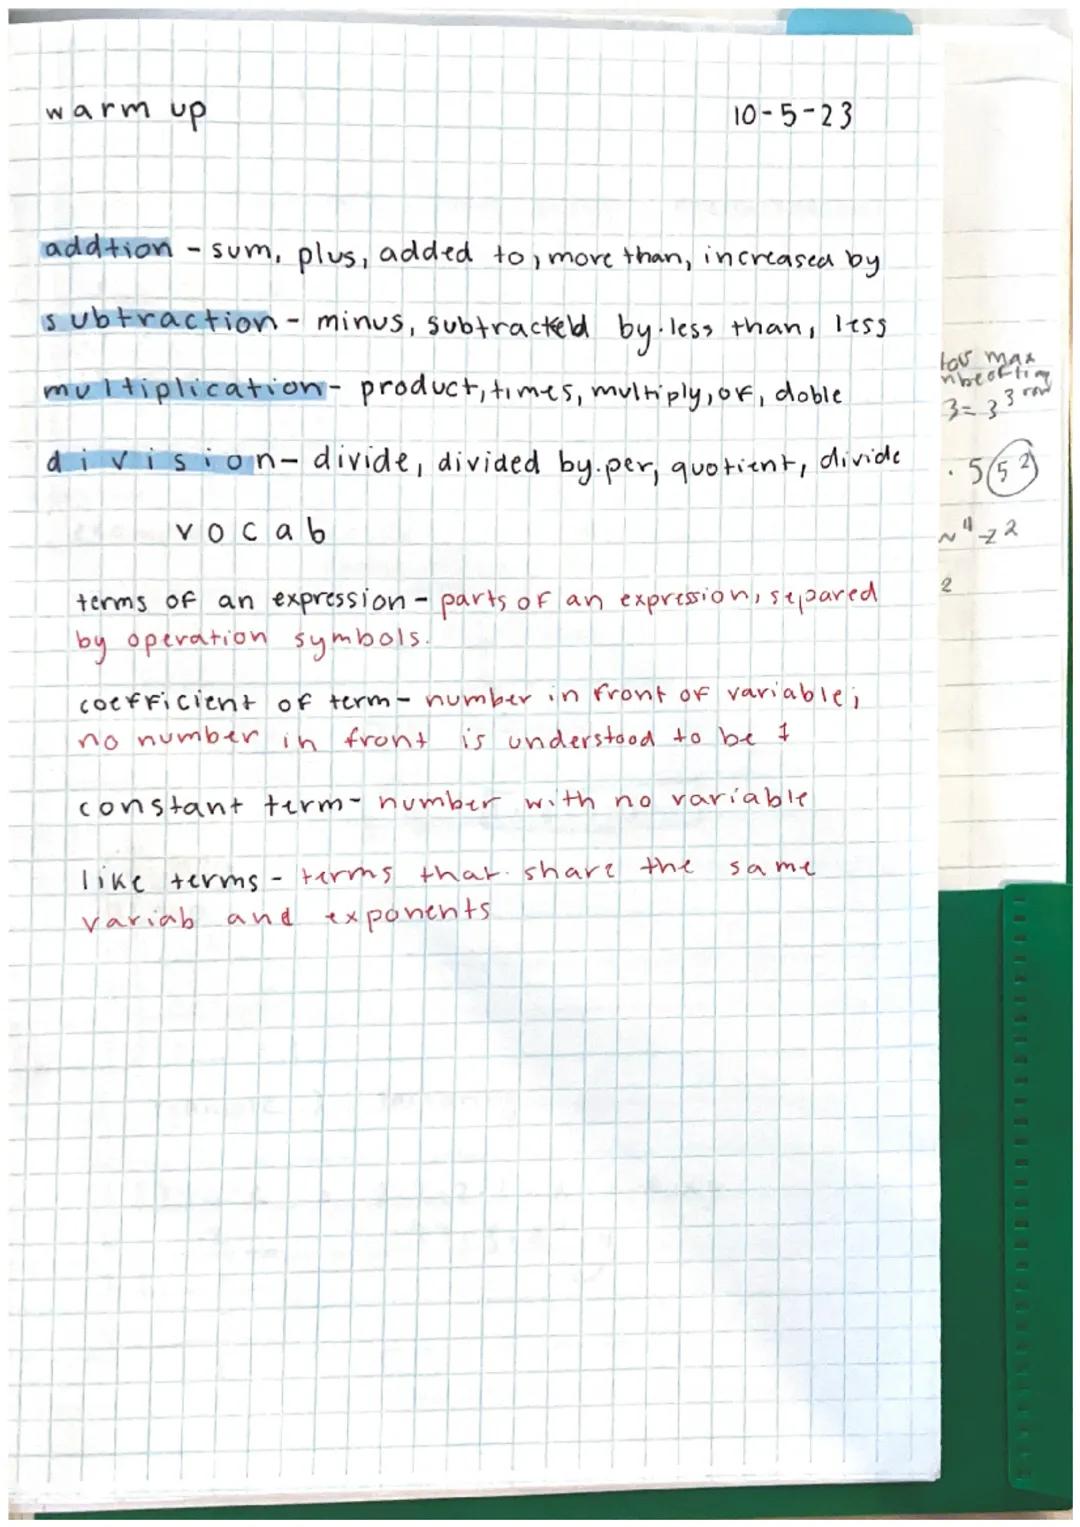 warm up 10-5-23
addtion - sum, plus, added to, more than, increased by
subtraction - minus, subtracted by. less than, less
multiplication - product, times, multiply, of, doble
division - divide, divided by. per, quotient, divide
vocab
terms of an expression - parts of an expression, separed
by operation symbols.
coefficient of term - number in front of variable;
no number in front is understood to be 1
constant term - number with no variable
like terms - terms that share the same
variab and exponents
max
3 = 3³
· 5 5²
2